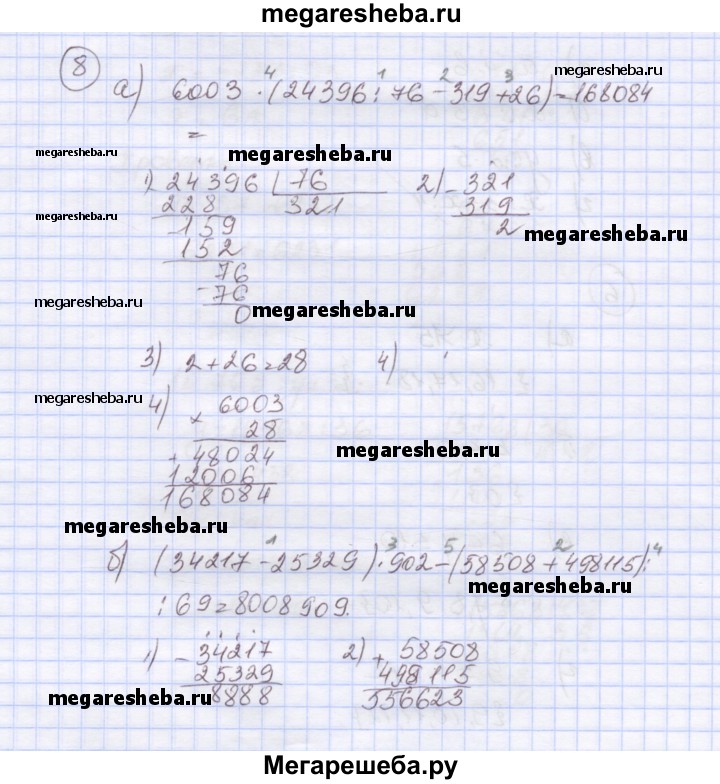 megaresheba.ru
8
а) 6003 · (24396 : 76 - 319 + 26) = 168084
4 1 2 3
megaresheba.ru
=
megaresheba.ru
megaresheba.ru
1) 24396 76 2) - 321
228 321 319
- 159 2
megaresheba.ru
megaresheba.ru
152
76
- 76
megaresheba.ru
0 megaresheba.ru
3) 2 + 26 = 28 4)
megaresheba.ru
4) × 6003
28
megaresheba.ru
+ 48024
12006
168084
megaresheba.ru
1 3 5 2 4
б) (34217 - 25329) · 902 - (58508 + 498115) :
megaresheba.ru
: 69 = 8008909.
1) - 34217 2) + 58508
25329 498115
megaresheba.ru
8888 556623
megaresheba.ru
Мегарешеба.ру